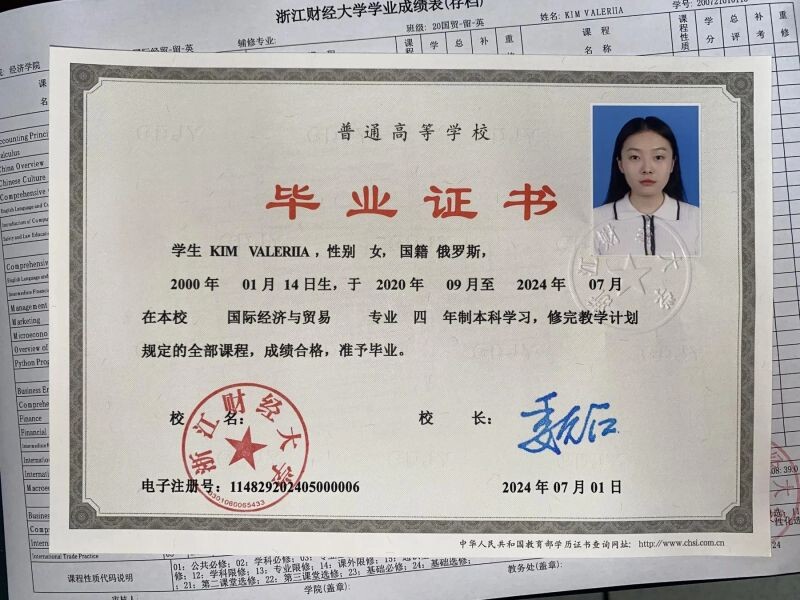 浙江财经大学学业成绩表(存档)
班级: 20国贸-留-英
姓名: KIM VALERIIA
学号:
辅修专业:
经济学院
课程性质
学分
总评
补考
重修
课 程
名 称
普通高等学校
毕业证书
学生 KIM VALERIIA ，性别 女，国籍 俄罗斯，
2000 年 01 月 14 日生，于 2020 年 09 月至 2024 年 07 月
在本校 国际经济与贸易 专业 四 年制本科学习，修完教学计划
规定的全部课程，成绩合格，准予毕业。
校 名：
校 长：
浙江财经大学
电子注册号：114829202405000006
2024 年 07 月 01 日
中华人民共和国教育部学历证书查询网址：http://www.chsi.com.cn
Calculus
China Overview
Chinese Culture
Comprehensive
Management
Marketing
Overview of
Finance
Financial
International Trade Practice
课程性质代码说明
01: 公共必修; 02: 学科必修; 03:
修; 12: 学科限修; 13: 专业限修; 14: 课外限修; 15:
; 21: 第二课堂选修; 22: 第三课堂选修; 23: 基础必修; 24: 基础选修;
学院(盖章):
教务处(盖章):